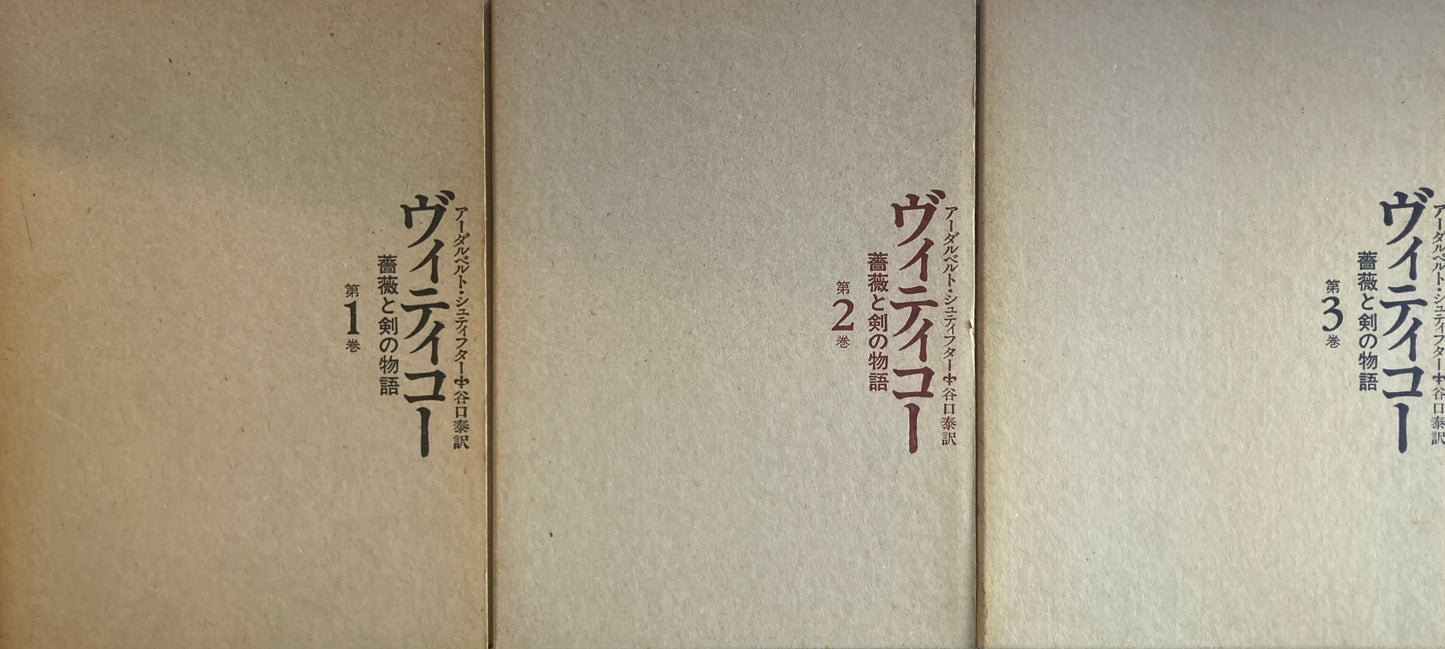 アーダルベルト・シュティフター 谷口泰訳
ヴィティコー
薔薇と剣の物語
第1巻
アーダルベルト・シュティフター 谷口泰訳
ヴィティコー
薔薇と剣の物語
第2巻
アーダルベルト・シュティフター 谷口泰訳
ヴィティコー
薔薇と剣の物語
第3巻